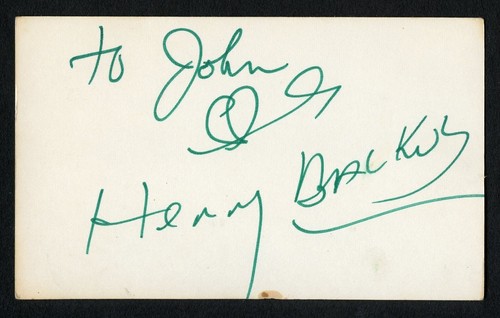 to John
Henny BACKUS